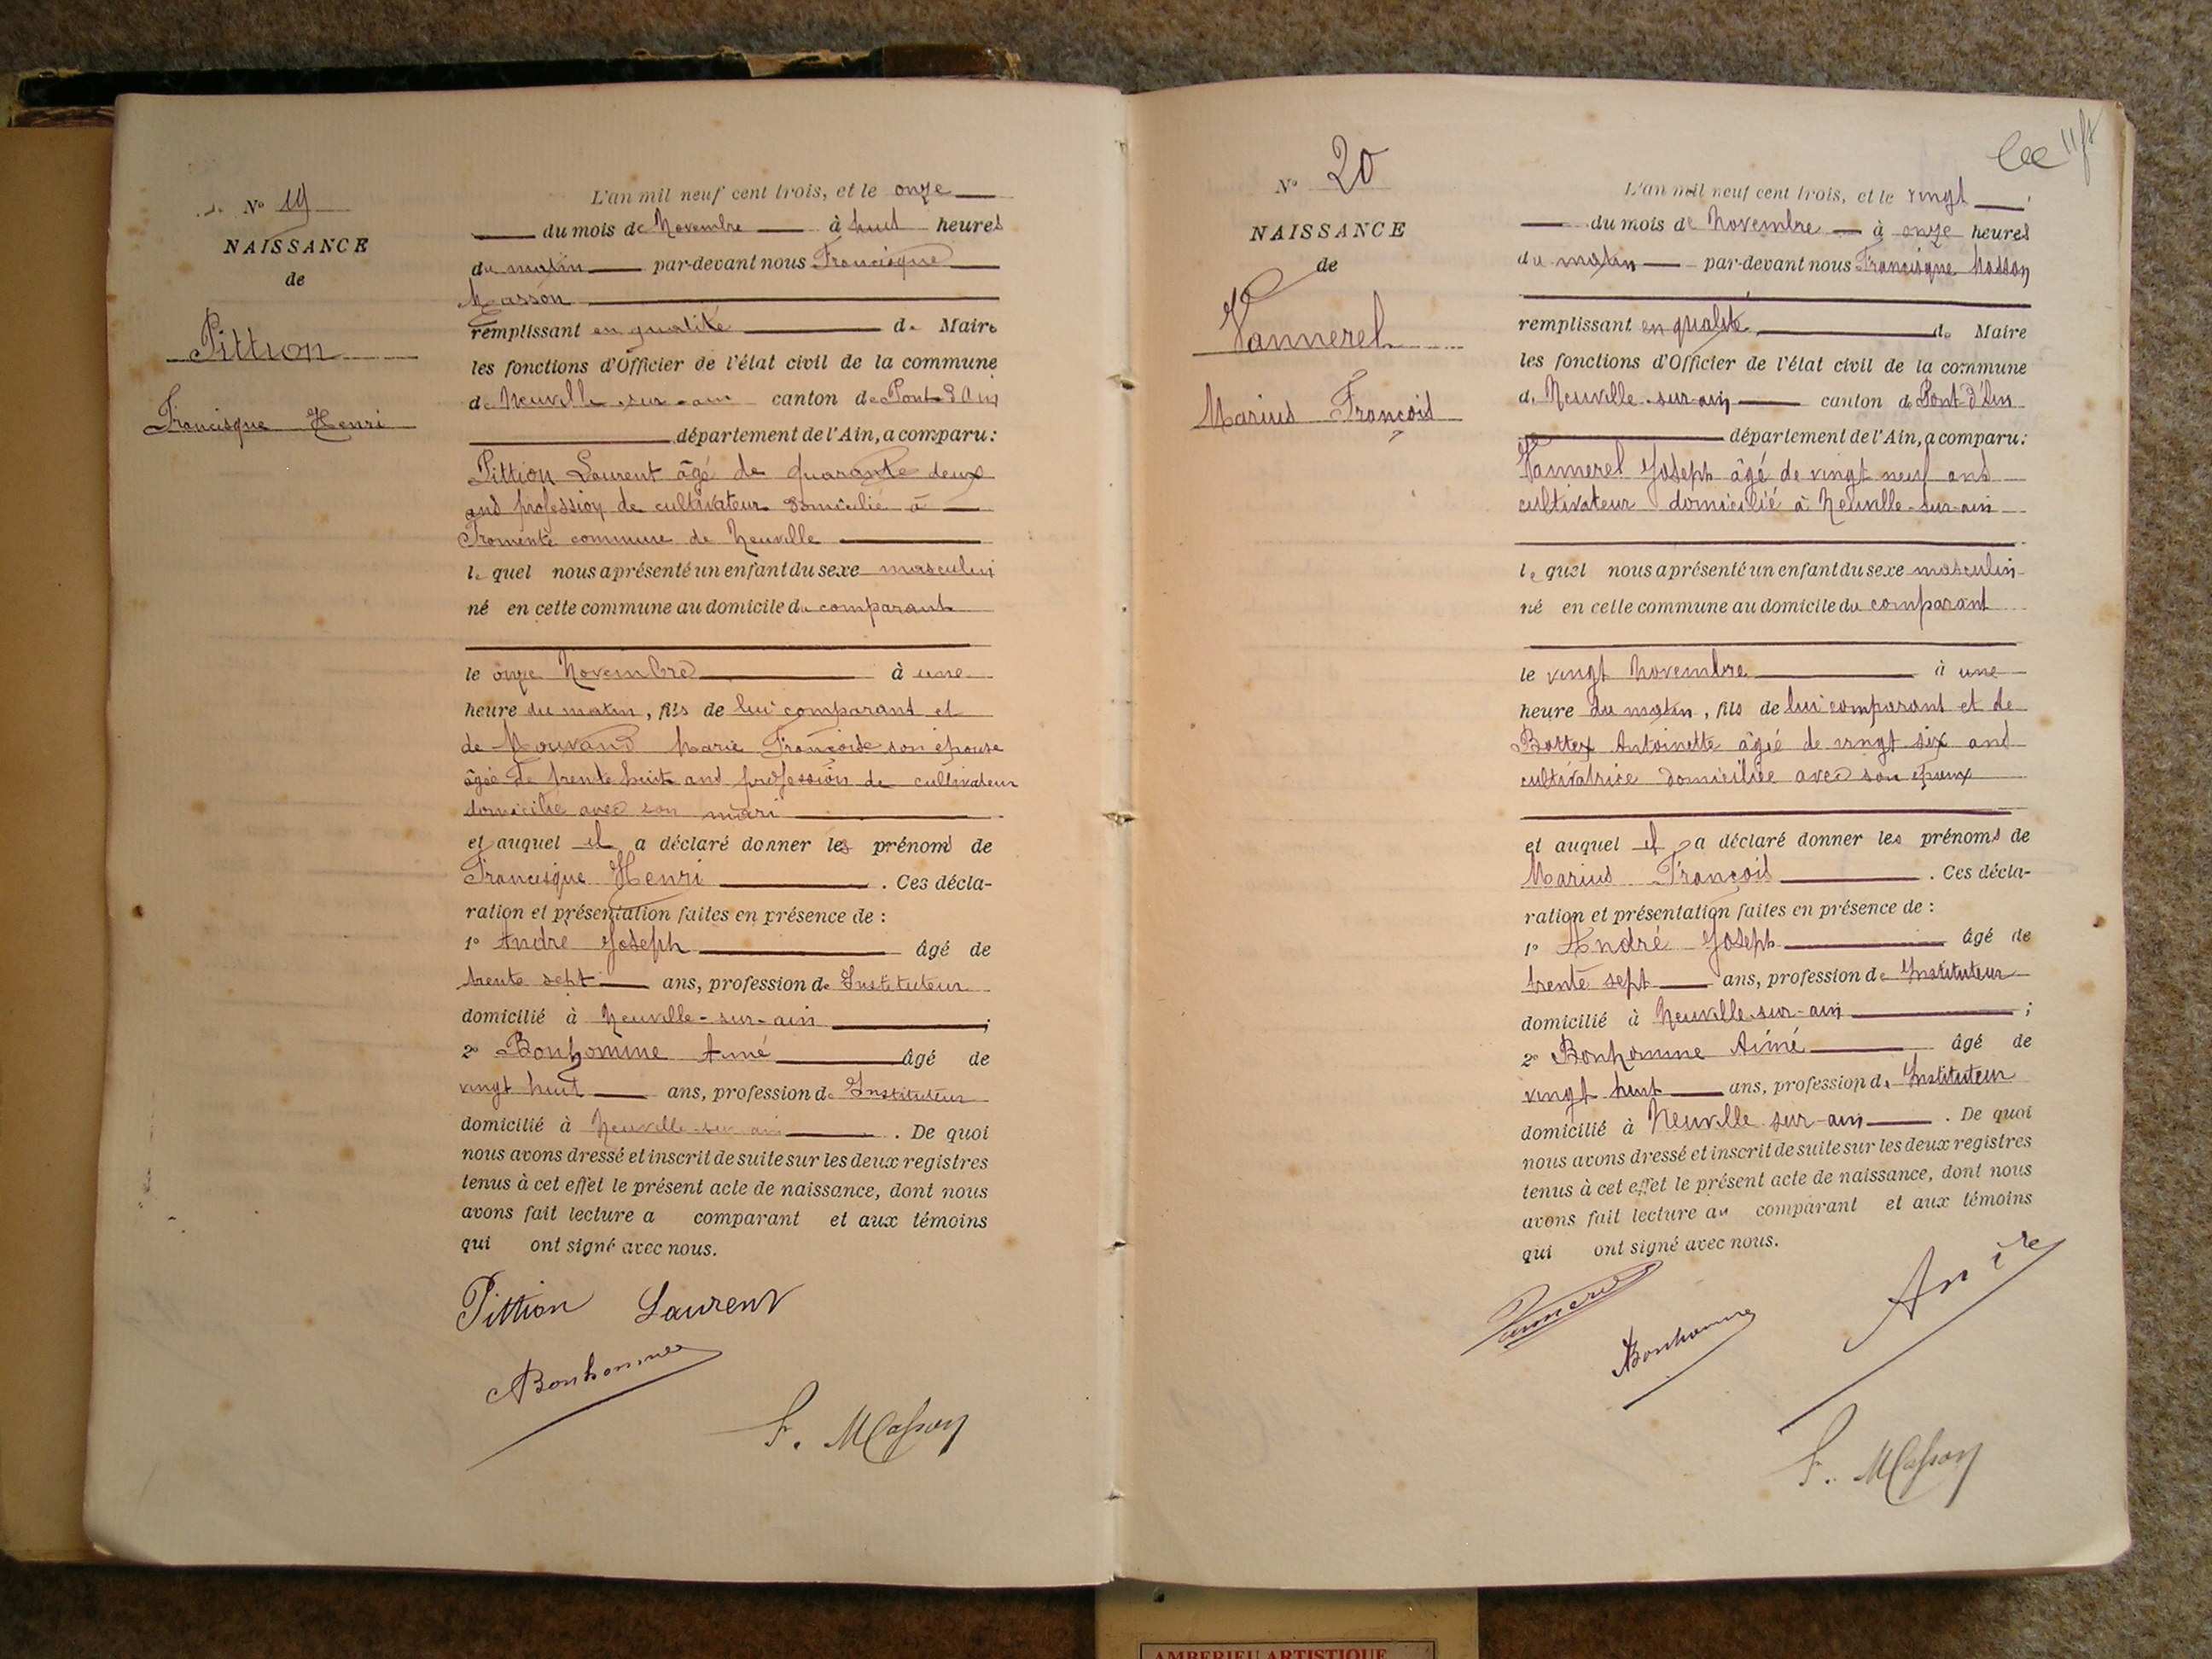 N° 19
NAISSANCE
de
Pittion
Francisque Henri
L'an mil neuf cent trois, et le onze
du mois de Novembre à huit heures
du matin par-devant nous Francisque
Masson
remplissant en qualité de Maire
les fonctions d'Officier de l'état civil de la commune
de Neuville-sur-ain canton de Pont d'Ain
département de l'Ain, a comparu:
Pittion Laurent âgé de quarante deux
ans profession de cultivateur domicilié à
Fromente commune de Neuville
le quel nous a présenté un enfant du sexe masculin
né en cette commune au domicile du comparant
le onze Novembre à une
heure du matin, fils de lui comparant et
de Mouvand Marie Françoise son épouse
âgée de trente huit ans profession de cultivateur
domicilie avec son mari
et auquel il a déclaré donner les prénoms de
Francisque Henri . Ces décla-
ration et présentation faites en présence de :
1° André Joseph âgé de
trente sept ans, profession de Instituteur
domicilié à Neuville-sur-ain ;
2° Bonhomme Aimé âgé de
vingt huit ans, profession de Instituteur
domicilié à Neuville-sur-ain . De quoi
nous avons dressé et inscrit de suite sur les deux registres
tenus à cet effet le présent acte de naissance, dont nous
avons fait lecture a comparant et aux témoins
qui ont signé avec nous.
Pittion Laurent
Bonhomme
F. Masson
N° 20
NAISSANCE
de
Vannerel
Marius François
L'an mil neuf cent trois, et le vingt
du mois de Novembre à onze heures
du matin par-devant nous Francisque Masson
remplissant en qualité de Maire
les fonctions d'Officier de l'état civil de la commune
de Neuville-sur-ain canton de Pont-d'Ain
département de l'Ain, a comparu:
Vannerel Joseph âgé de vingt neuf ans
cultivateur domicilié à Neuville-sur-ain
le quel nous a présenté un enfant du sexe masculin
né en cette commune au domicile du comparant
le vingt Novembre à une
heure du matin, fils de lui comparant et de
Bottex Antoinette âgée de vingt six ans
cultivatrice domiciliée avec son époux
et auquel il a déclaré donner les prénoms de
Marius François . Ces décla-
ration et présentation faites en présence de :
1° André Joseph âgé de
trente sept ans, profession de Instituteur
domicilié à Neuville-sur-ain ;
2° Bonhomme Aimé âgé de
vingt huit ans, profession de Instituteur
domicilié à Neuville sur-ain . De quoi
nous avons dressé et inscrit de suite sur les deux registres
tenus à cet effet le présent acte de naissance, dont nous
avons fait lecture au comparant et aux témoins
qui ont signé avec nous.
Vannerel
Bonhomme
André
F. Masson
AMBERIEU ARTISTIQUE